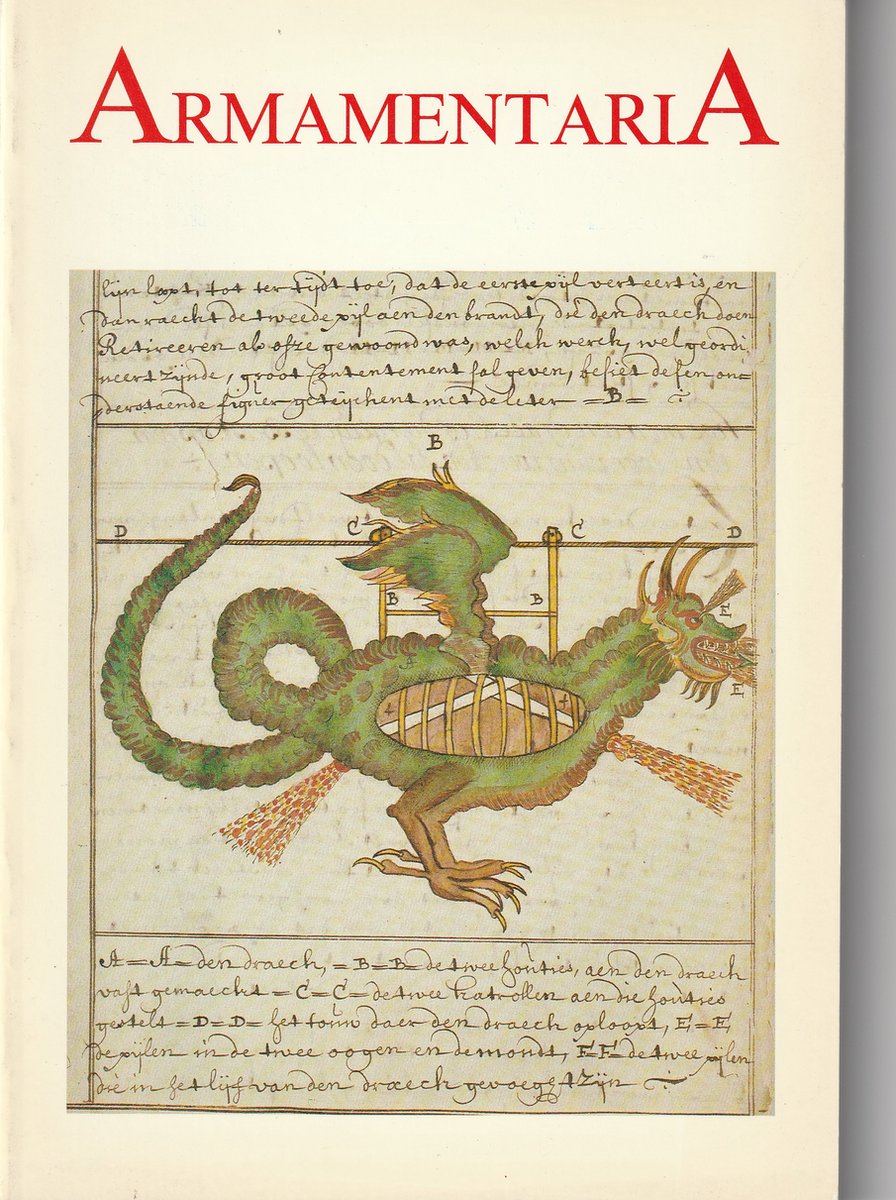 ARMAMENTARIA
lijn loopt, tot ter tijdt toe, dat de eerste pijl verteert is, en
dan raeckt de tweede pijl aen den brandt, die den draech doen
Retireeren als ofze gewoond was, welch werck, wel geordi
neert zijnde, groot Contentement sal geven, besiet desen on=
derstaende figuer geteijckent met de leter =B=
B
D C C D
B B
E
A
E
A=A=den draech, =B=B=de twee houties, aen den draech
vast gemaeckt =C=C=de twee katrollen aen die houties
gestelt =D=D=het touw daer den draech op loopt, E=E
de pijlen in de twee oogen en de mondt, FF de twee pijlen
die in het lijf van den draech gevoegt zijn